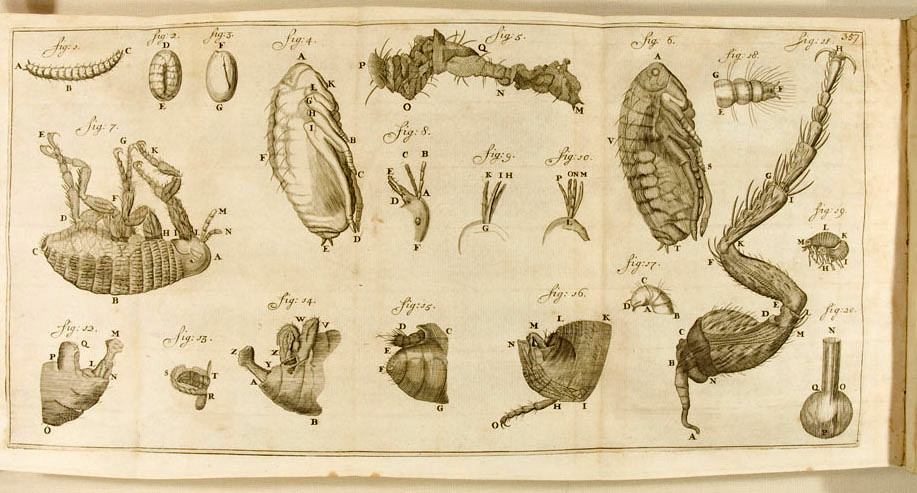 fig: 1.
fig: 2.
fig: 3.
fig: 4.
fig: 5.
fig: 6.
fig: 18.
fig: 21.
357
A B C
D E
F G
A L K G H I B F C D E
P O Q N M
A V S T
G F E
H G I K F E D M C B N A
fig: 7.
fig: 8.
fig: 9.
fig: 10.
E G K F D H I M N C A B
C B E D A F
K I H G
P O N M
fig: 19.
L M K H I
fig: 17.
C D A B
fig: 12.
fig: 13.
fig: 14.
fig: 15.
fig: 16.
fig: 20.
M Q P I N O
S T R
W V Z Z Y A B
D C E F G
L K M N H I O
N Q O P